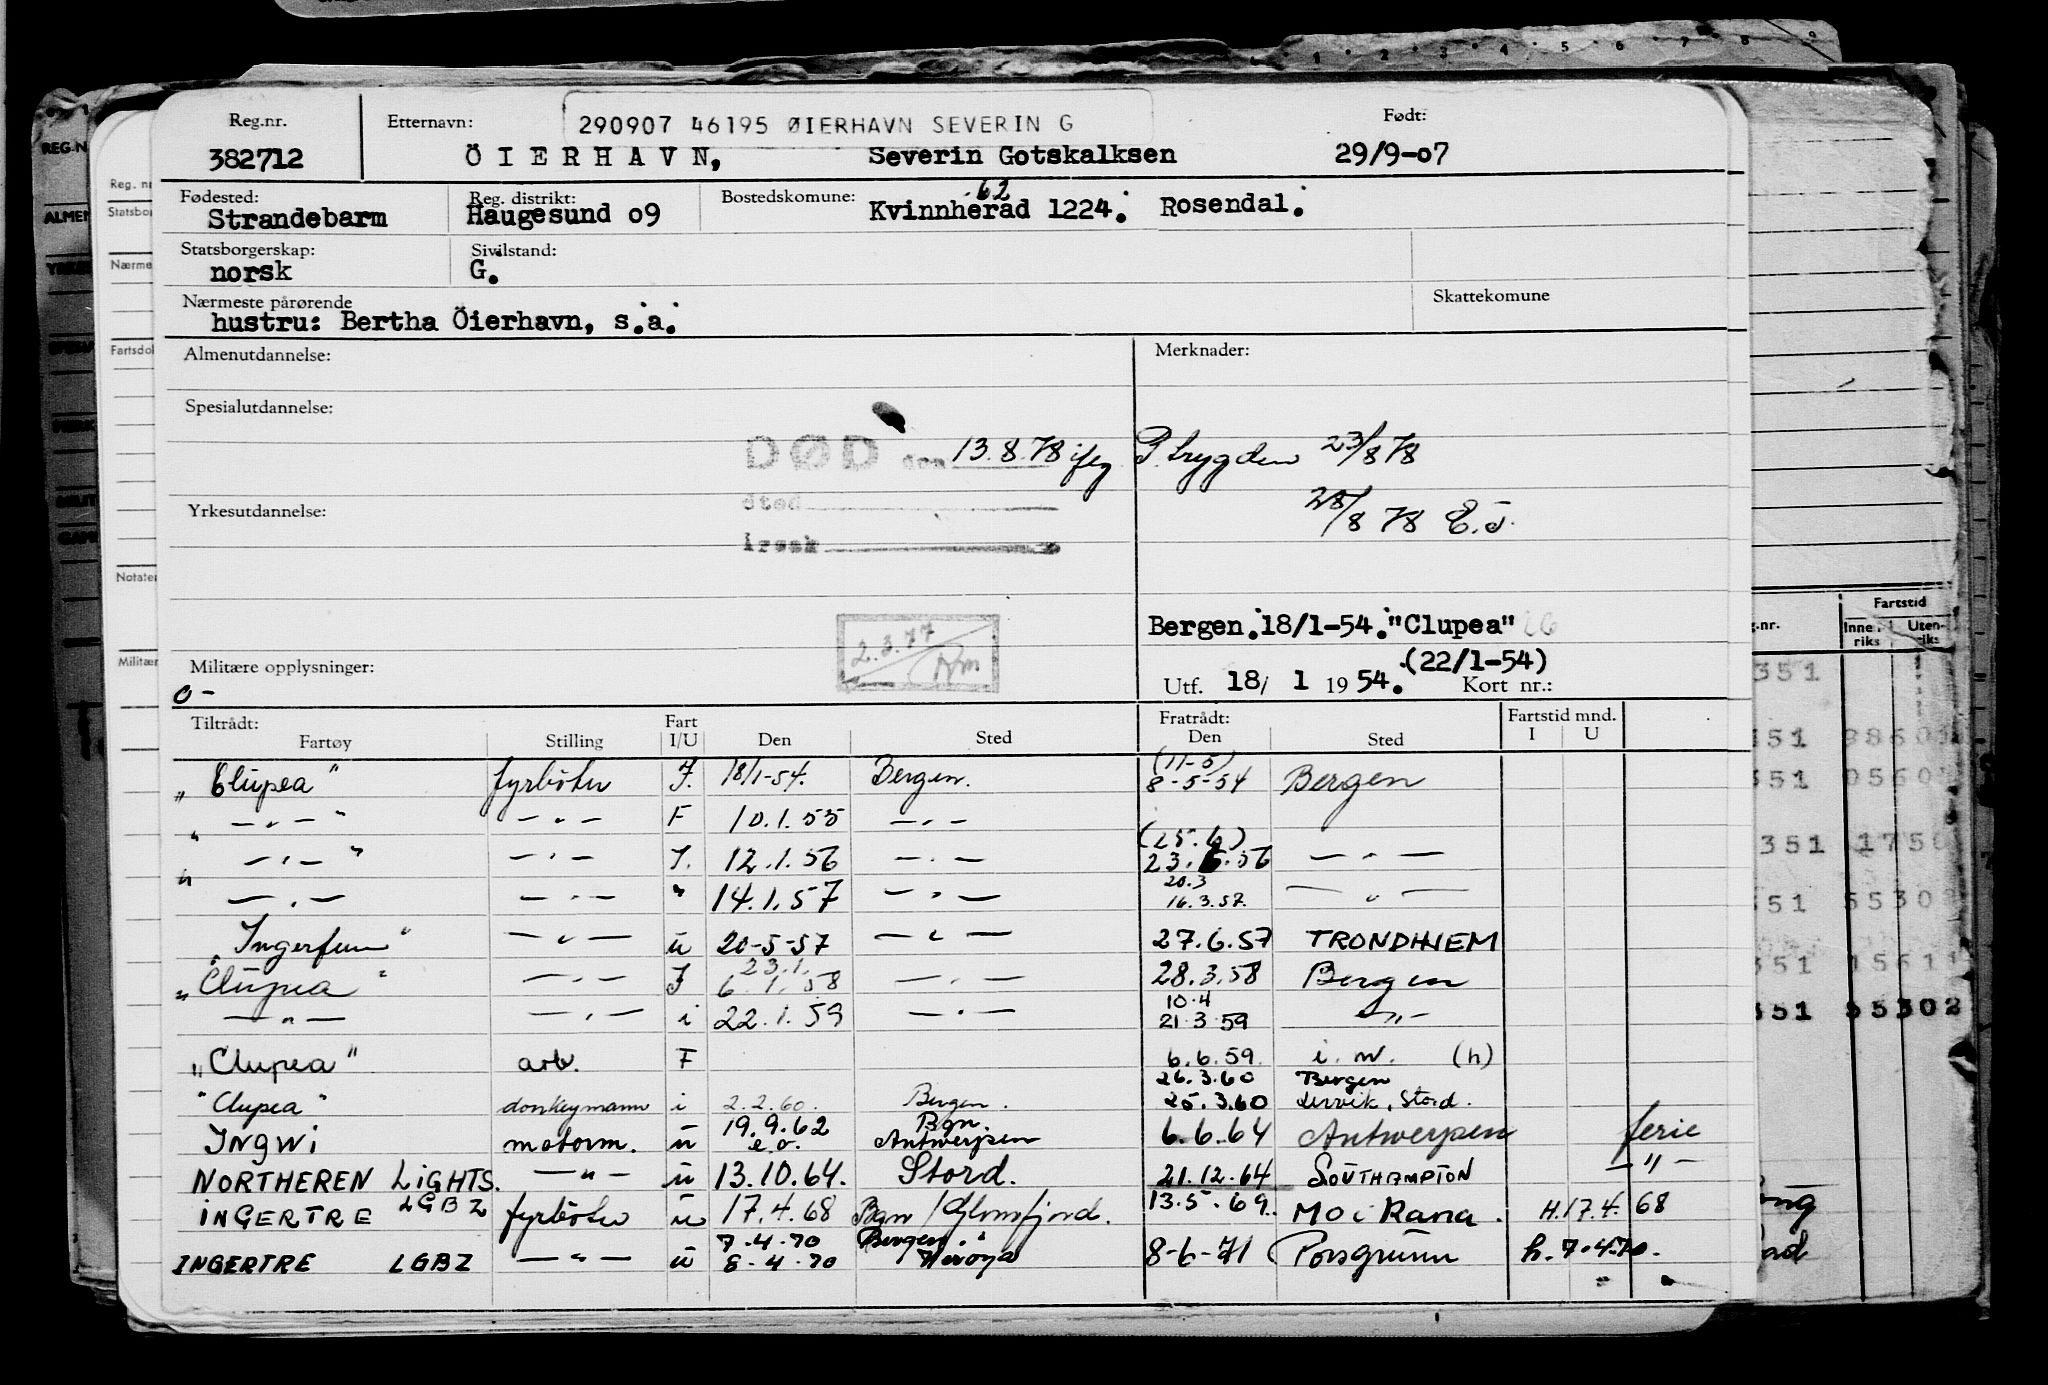 Reg.nr. Etternavn: 290907 46195 ØIERHAVN SEVERIN G Født:
382712 ÖIERHAVN, Severin Gotskalksen 29/9-07
Fødested: Reg. distrikt: Bostedskomune: 62
Strandebarm Haugesund 09 Kvinnherad 1224. Rosendal.
Statsborgerskap: Sivilstand:
norsk G.
Nærmeste pårørende Skattekomune
hustru: Bertha Öierhavn, s.a.
Almenutdannelse: Merknader:
Spesialutdannelse:
DØD den 13.8.78 iflg P.trygden 23/8 78
sted
Yrkesutdannelse: 28/8 78 E.J.
årsak
Bergen.18/1-54."Clupea"
2.3.77
(22/1-54)
Militære opplysninger: Utf. 18/ 1 1954. Kort nr.:
0-
Tiltrådt: Fart Fratrådt: Fartstid mnd.
Fartøy Stilling I/U Den Sted Den Sted I U
"Clupea" fyrböter I. 18/1-54. Bergen. (11-5) 8-5-54 Bergen
" — " — " — " — F 10.1.55 — " —
" — " — " — " — I. 12.1.56 — " — (25.6) 23.6.56 — " —
— " — — " — " 14.1.57 — " — 20.3 16.3.57. — " —
"Ingerfem" — " — u 20-5-57 — " — 27.6.57 TRONDHJEM
"Clupea" — " — I 23.1. 6.1.58 — " — 28.3.58 Bergen
— " — — " — i 22.1.59 — " — 10.4 21.3.59 — " —
"Clupea" arb. F 6.6.59. i. m. (h)
"Clupea" donkeymann i 2.2.60. Bergen. 26.3.60 Bergen 25.3.60 Lervik, Stord.
INGWI motorm. u 19.9.62 e.o. Bgn. Antwerpen 6.6.64 Antwerpen ferie
NORTHEREN LIGHTS. — " — u 13.10.64. Stord. 21.12.64 SOUTHAMPTON — " —
INGERTRE LGBZ fyrböter u 17.4.68 Bgn / Glomfjord. 13.5.69. MO i Rana. H.17.4.68
INGERTRE LGBZ — " — u 7.4.70 8-4-70 Bergen. Heröya 8-6-71 Porsgrunn h. 7.4.70.
Fartstid
Innenriks Utenriks